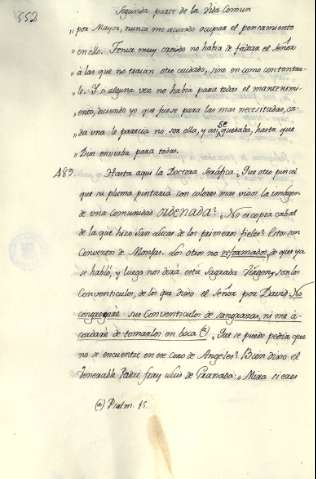 552
Segunda parte de la Vida Comun
„por Mayor, nunca me acuerdo ocupar el pensamiento
„en ello. Tenia muy creido no habia de faltar el Señor
„á las que no traian otro cuidado, sino en como contentar-
„le. Y si alguna vez no habia para todas el mantenimi-
„ento, diciendo yo que fuese para las mas necesitadas, ca-
„da una le parecia no ser ella, y así se quedaba, hasta que
„Dios enviaba para todas.
489. Hasta aqui la Doctora Seráfica. Que otro pincel
que su pluma pintaria con colores mas vivos la imagen
de una comunidad ordenada? No es copia cabal
de la que hizo San Lucas de los primeros fieles? Estos son
Conventos de Monjas. Los otros no reformados, de que ya
se habló, y luego nos dirá esta Sagrada Virgen, son los
Conventiculos, de los que dixo el Señor por David: No
congregaré sus Conventiculos de sangrazas, ni me a-
cordaré de tomarlos en boca (*). Que se puede pedir que
no se encuentre en ese Coro de Angeles? Bien dixo el
Venerable Padre fray Luis de Granada: Mira si eres
(*) Psalm. 15.